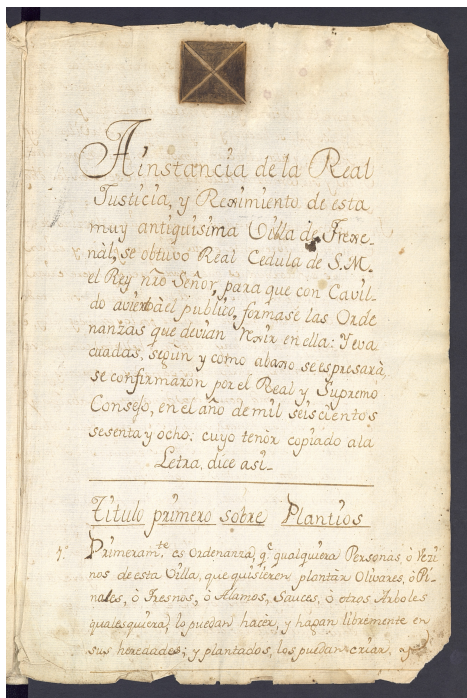 A instancia de la Real
Justicia, y Reximiento de esta
muy antiquisima Villa de Frexe-
nàl, se obtuvo Real Cedula de S.M.
el Rey nrõ Señor, para que con Cavil-
do avierto àel publico, formase las Orde
nanzas que devian rexir en ella: Y eva
cuadas, segùn y como abaxo se espresarà,
se confirmaròn por el Real y Supremo
Consejo, en el año de mil seiscientos
sesenta y ocho: cuyo tenòr copiado ala
Letra, dice asi_
Titulo primero sobre Plantios
1.º Primeram.te es Ordenanza, q.e qualquiera Personas, ò Vezi
nos de esta Villa, que quisieren plantàr Olivares, ò Pi-
nales, ò Fresnos, ò Alamos, Sauces, ò otros Arboles
qualesquiera, lo puedan hacèr, y hagan libremente en
sus heredades; y plantados, los puedan criàr,